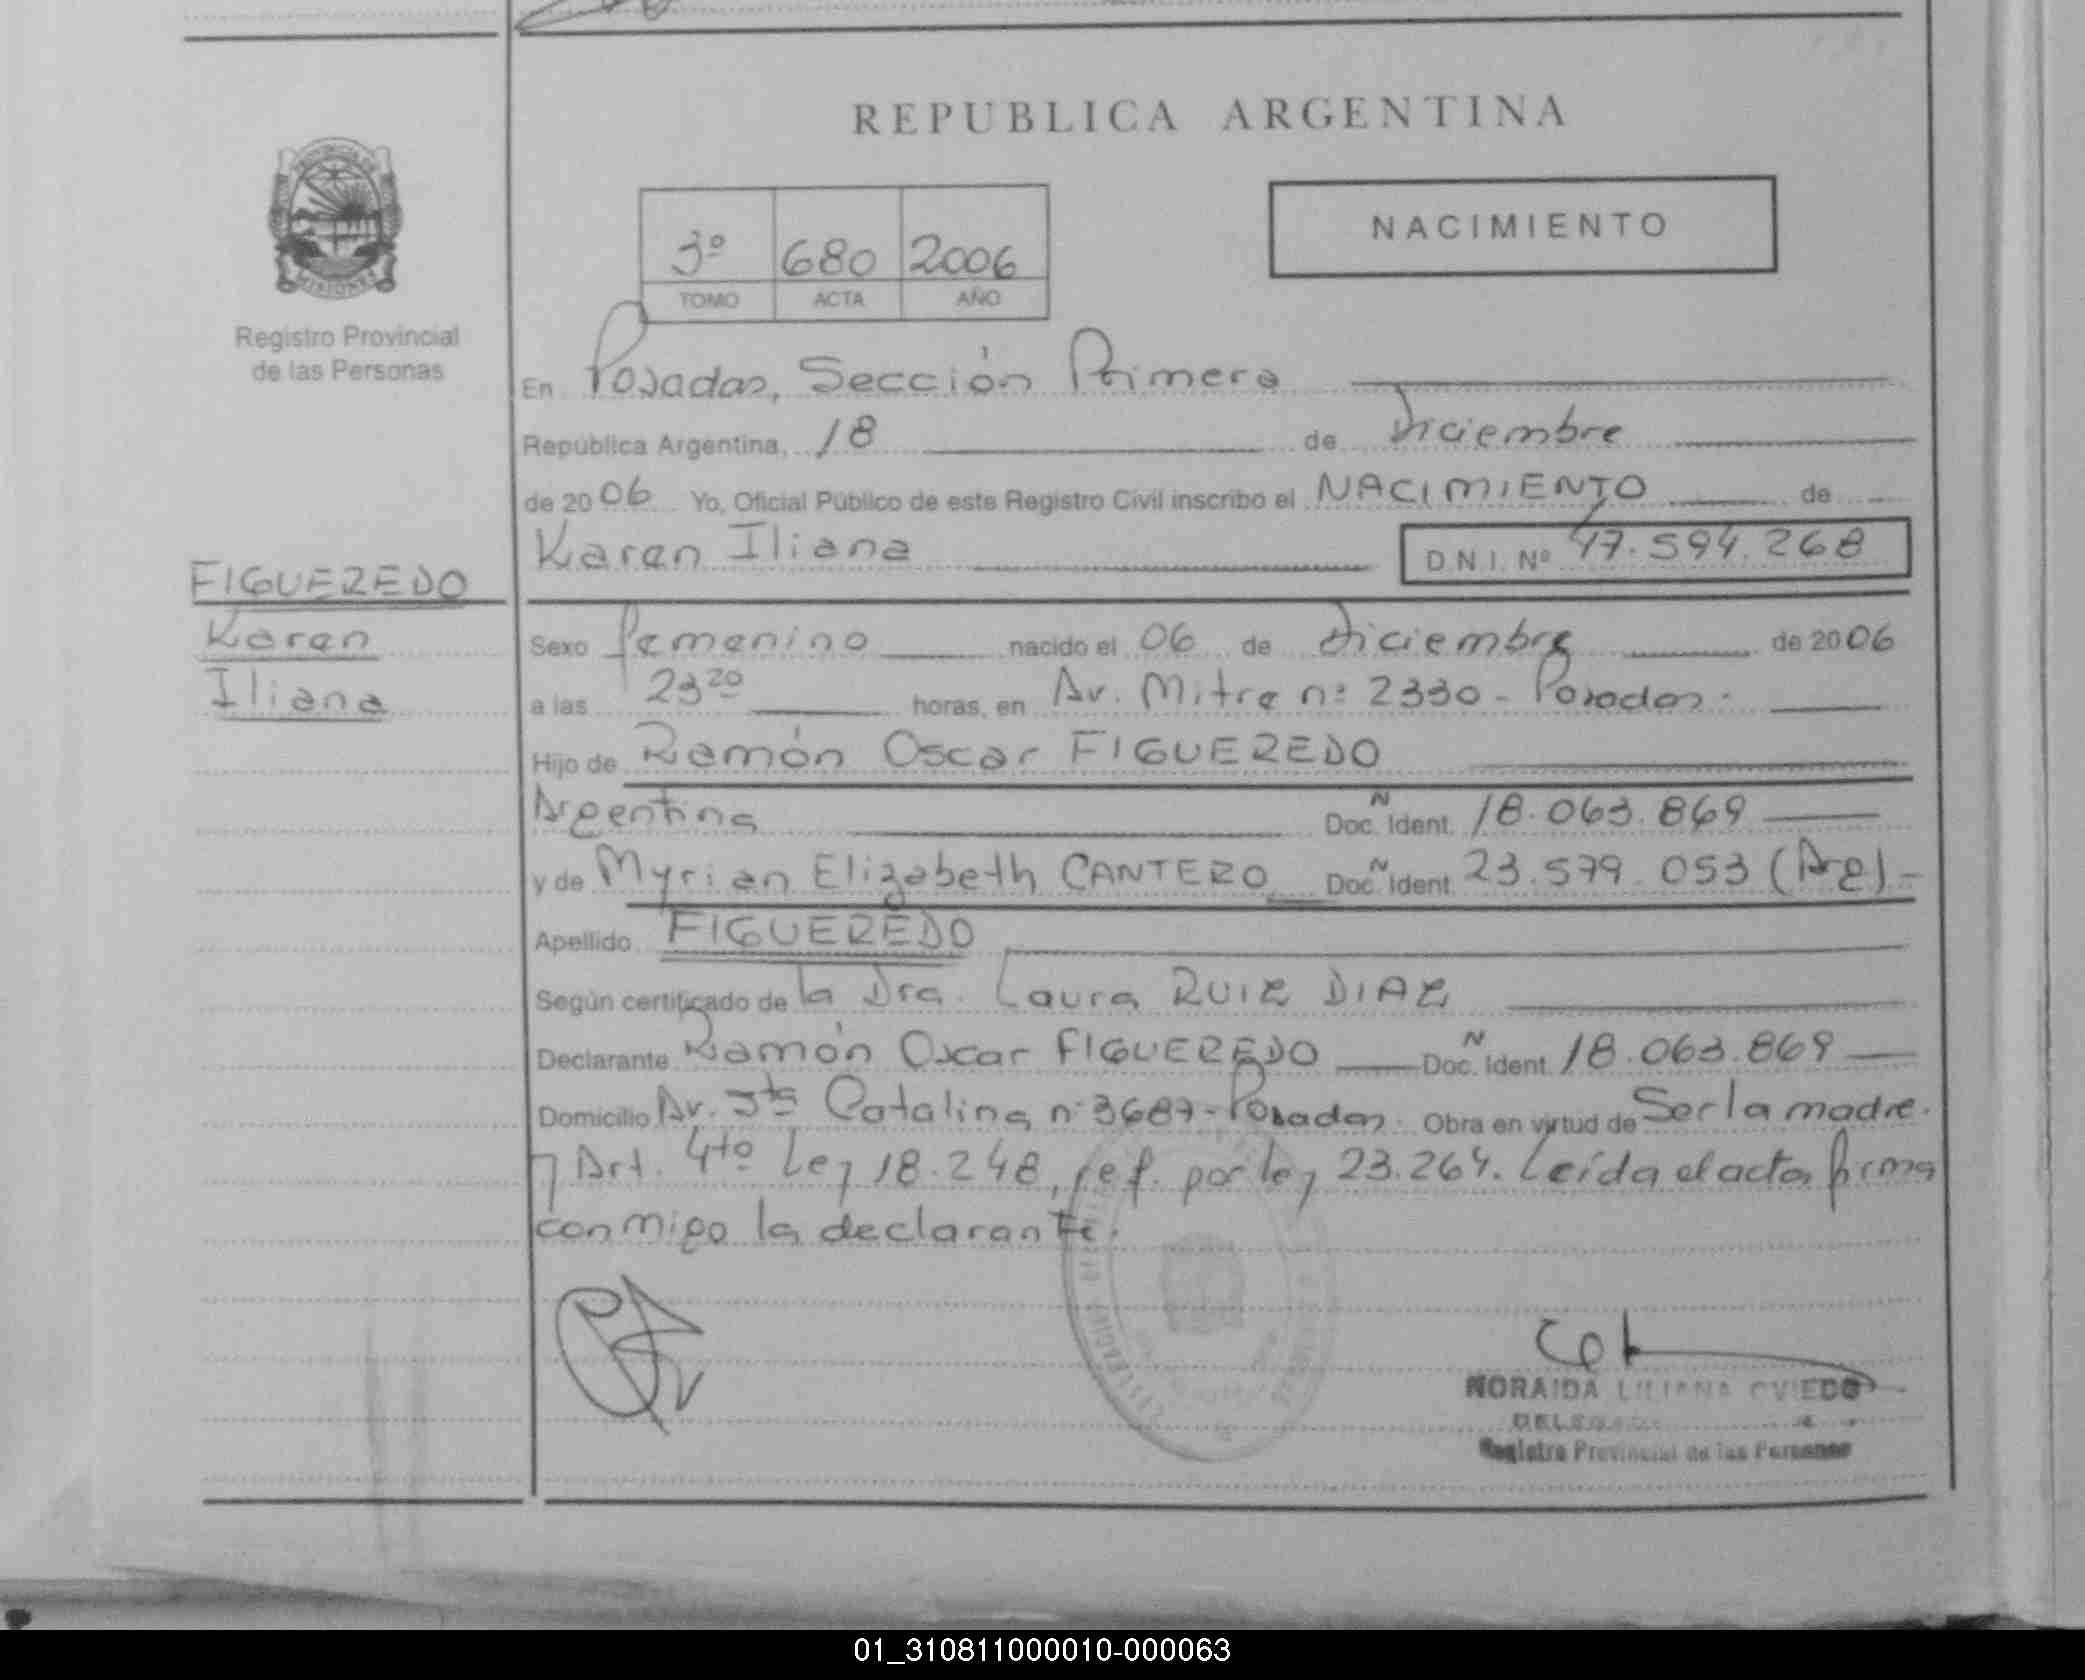 REPUBLICA ARGENTINA
NACIMIENTO
3º 680 2006
TOMO ACTA AÑO
Registro Provincial
de las Personas
En Posadas, Sección Primera
República Argentina, 18 de Diciembre
de 2006 Yo, Oficial Público de este Registro Civil inscribo el NACIMIENTO de
Karen Iliana D.N.I. Nº 47.594.268
FIGUEREDO
Karen
Iliana
Sexo femenino nacido el 06 de Diciembre de 2006
a las 23 20 horas, en Av. Mitre nº 2330 - Posadas.
Hijo de Ramón Oscar FIGUEREDO
Argentina Doc. Ident. N 18.063.869
y de Myrian Elizabeth CANTERO Doc. Ident. N 23.579.053 (Arg) -
Apellido FIGUEREDO
Según certificado de la Dra. Laura RUIZ DIAZ
Declarante Ramón Oscar FIGUEREDO Doc. Ident. N 18.063.869
Domicilio Av. Sta Catalina nº 3687 - Posadas. Obra en virtud de Ser la madre.
y Art. 4to Ley 18.248, ref. por ley 23.264. Leída el acta firma
conmigo la declarante.
NORAIDA LILIANA OVIEDO
Registro Provincial de las Personas
01_310811000010-000063